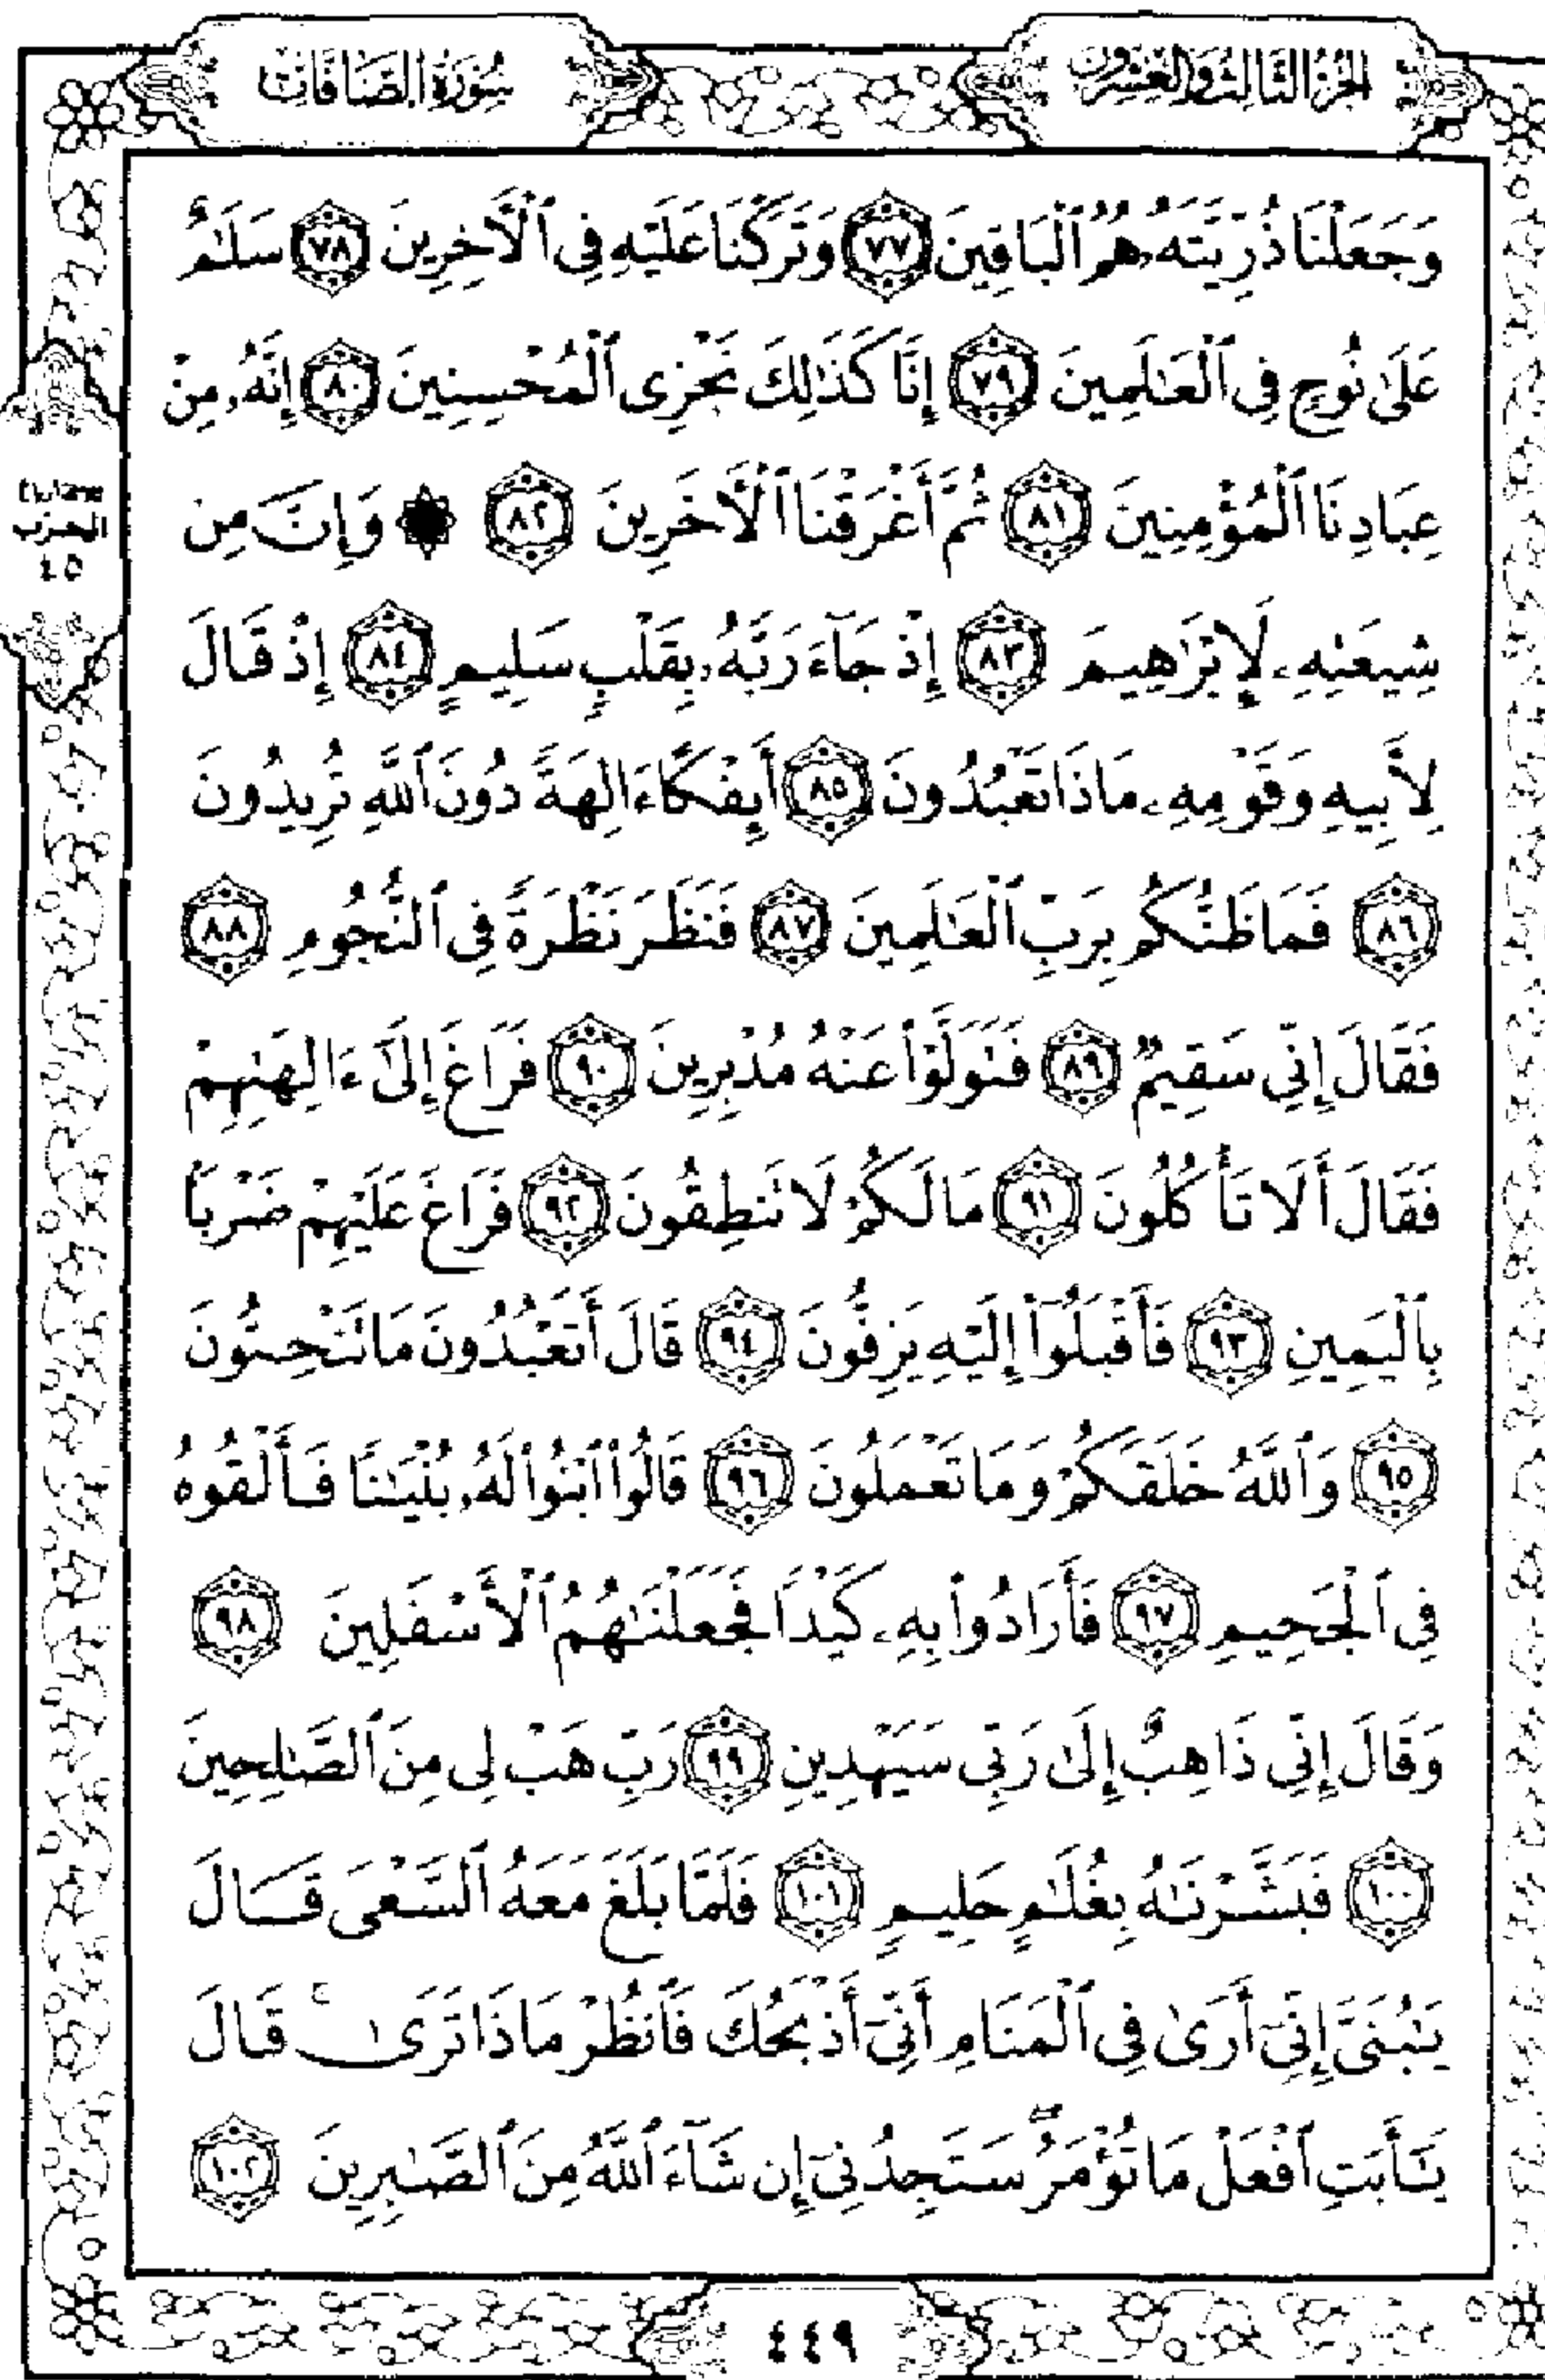 الجزء الثالث والعشرون
سورة الصافات
وَجَعَلْنَا ذُرِّيَّتَهُۥ هُمُ ٱلْبَاقِينَ ﴿٧٧﴾ وَتَرَكْنَا عَلَيْهِ فِى ٱلْأَخِرِينَ ﴿٧٨﴾ سَلَٰمٌ
عَلَىٰ نُوحٍ فِى ٱلْعَٰلَمِينَ ﴿٧٩﴾ إِنَّا كَذَٰلِكَ نَجْزِى ٱلْمُحْسِنِينَ ﴿٨٠﴾ إِنَّهُۥ مِنْ
عِبَادِنَا ٱلْمُؤْمِنِينَ ﴿٨١﴾ ثُمَّ أَغْرَقْنَا ٱلْأَخَرِينَ ﴿٨٢﴾ ۞ وَإِنَّ مِن
الحزب
٤٥
شِيعَتِهِۦ لَإِبْرَٰهِيمَ ﴿٨٣﴾ إِذْ جَآءَ رَبَّهُۥ بِقَلْبٍ سَلِيمٍ ﴿٨٤﴾ إِذْ قَالَ
لِأَبِيهِ وَقَوْمِهِۦ مَاذَا تَعْبُدُونَ ﴿٨٥﴾ أَئِفْكًا ءَالِهَةً دُونَ ٱللَّهِ تُرِيدُونَ
﴿٨٦﴾ فَمَا ظَنُّكُم بِرَبِّ ٱلْعَٰلَمِينَ ﴿٨٧﴾ فَنَظَرَ نَظْرَةً فِى ٱلنُّجُومِ ﴿٨٨﴾
فَقَالَ إِنِّى سَقِيمٌ ﴿٨٩﴾ فَتَوَلَّوْا۟ عَنْهُ مُدْبِرِينَ ﴿٩٠﴾ فَرَاغَ إِلَىٰٓ ءَالِهَتِهِمْ
فَقَالَ أَلَا تَأْكُلُونَ ﴿٩١﴾ مَا لَكُمْ لَا تَنطِقُونَ ﴿٩٢﴾ فَرَاغَ عَلَيْهِمْ ضَرْبًۢا
بِٱلْيَمِينِ ﴿٩٣﴾ فَأَقْبَلُوٓا۟ إِلَيْهِ يَزِفُّونَ ﴿٩٤﴾ قَالَ أَتَعْبُدُونَ مَا تَنْحِتُونَ
﴿٩٥﴾ وَٱللَّهُ خَلَقَكُمْ وَمَا تَعْمَلُونَ ﴿٩٦﴾ قَالُوا۟ ٱبْنُوا۟ لَهُۥ بُنْيَٰنًا فَأَلْقُوهُ
فِى ٱلْجَحِيمِ ﴿٩٧﴾ فَأَرَادُوا۟ بِهِۦ كَيْدًا فَجَعَلْنَٰهُمُ ٱلْأَسْفَلِينَ ﴿٩٨﴾
وَقَالَ إِنِّى ذَاهِبٌ إِلَىٰ رَبِّى سَيَهْدِينِ ﴿٩٩﴾ رَبِّ هَبْ لِى مِنَ ٱلصَّٰلِحِينَ
﴿١٠٠﴾ فَبَشَّرْنَٰهُ بِغُلَٰمٍ حَلِيمٍ ﴿١٠١﴾ فَلَمَّا بَلَغَ مَعَهُ ٱلسَّعْىَ قَالَ
يَٰبُنَىَّ إِنِّىٓ أَرَىٰ فِى ٱلْمَنَامِ أَنِّىٓ أَذْبَحُكَ فَٱنظُرْ مَاذَا تَرَىٰ ۚ قَالَ
يَٰٓأَبَتِ ٱفْعَلْ مَا تُؤْمَرُ ۖ سَتَجِدُنِىٓ إِن شَآءَ ٱللَّهُ مِنَ ٱلصَّٰبِرِينَ ﴿١٠٢﴾
٤٤٩